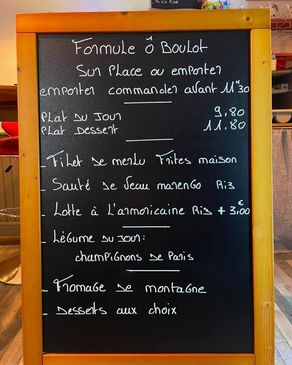 Formule Ô Boulot
Sur Place ou emporter
emporter commander avant 11H30
Plat du Jour 9,80
Plat Dessert 11.80
- Filet de merlu Frites maison
- Sauté de Veau marengo Riz
- Lotte à L'armoricaine Riz + 3,00€
- Légume du Jour:
champignons de Paris
- Fromage de montagne
- Desserts aux choix